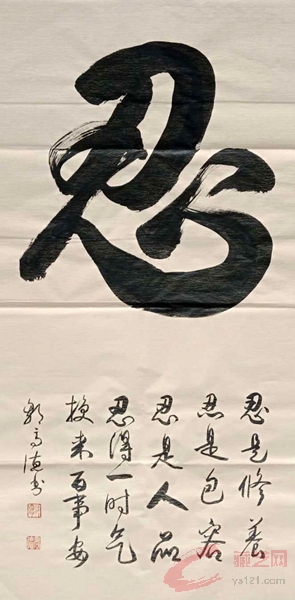 忍
忍是修养
忍是包容
忍是人品
忍得一时气
换来百事安
郭高德书
雅艺网
ys121.com